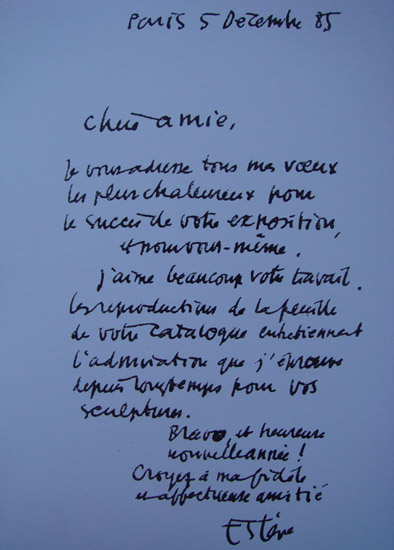 Paris 5 Décembre 85
Chère amie,
Je vous adresse tous mes vœux
les plus chaleureux pour
le succès de votre exposition,
et pour vous-même.
J'aime beaucoup votre travail.
Les reproductions de la feuille
de votre catalogue entretiennent
l'admiration que j'éprouve
depuis longtemps pour vos
sculptures.
Bravo, et heureuse
nouvelle année !
Croyez à ma fidèle
et affectueuse amitié
Estève